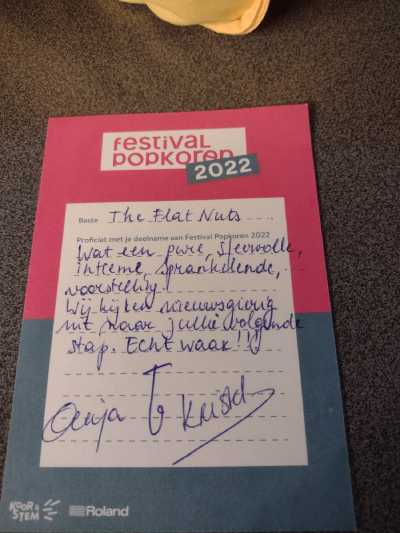 festival
popkoren
2022
Beste The Flat Nuts
Proficiat met je deelname aan Festival Popkoren 2022
Wat een pure, sfeervolle,
intieme, sprankelende,...
voorstelling.
Wij kijken nieuwsgierig
uit naar jullie volgende
stap. Echt waar!!!
KOOR &
STEM
Roland